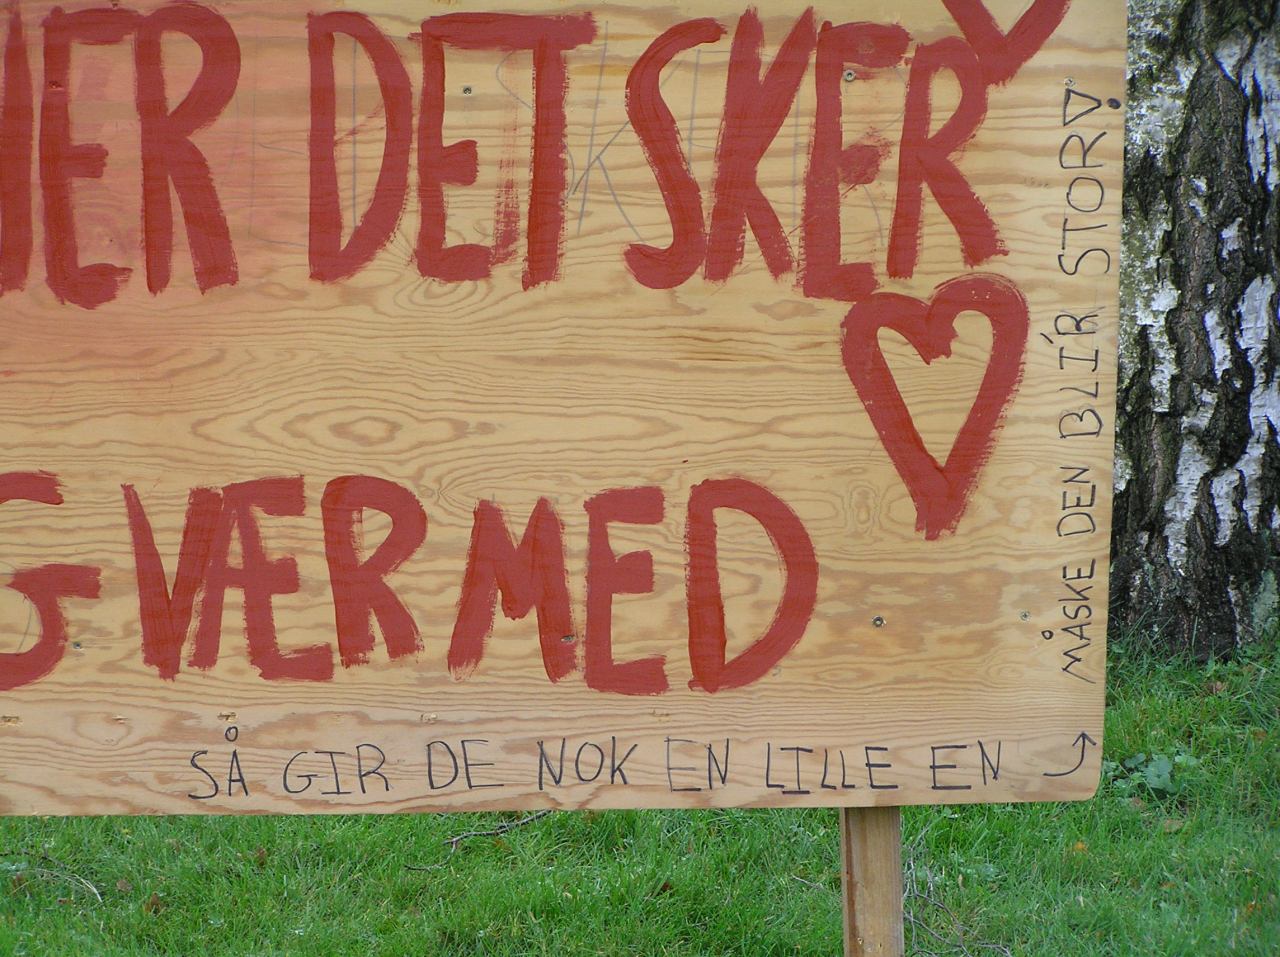 HER DET SKER
G VÆR MED
SÅ GIR DE NOK EN LILLE EN
MÅSKE DEN BLI'R STOR